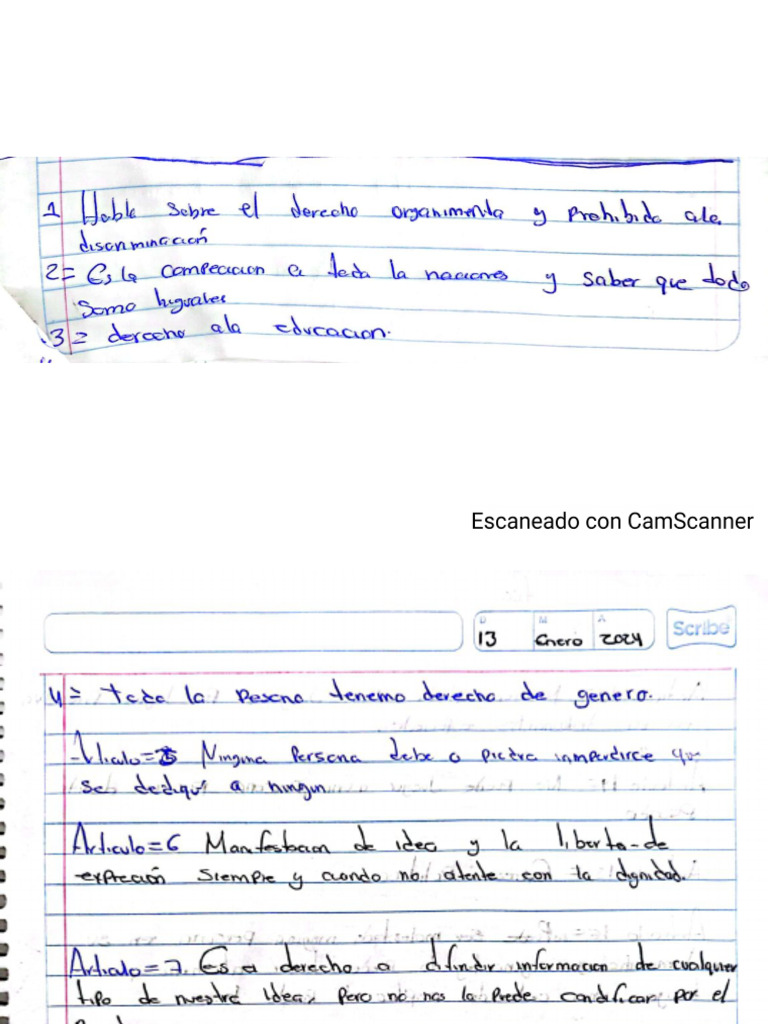 1 Habla sobre el derecho organimenta y Prohibido ala
discriminación
2= Es la compecacion a toda la naciones y saber que todo
Somo huguales
3= derecho ala educacion.
Escaneado con CamScanner
D M A
13 Enero 2024
Scribe
4= toda la Pesona tenemo derecho de genero.
=5 Ninguna Persona debe o piedra imperdirce que
se dediqui a ningun
Articulo=6 Manifestacion de idea y la liberta-de
expreción siempre y cuando no atente con la dignidad.
Articulo=7. Es a derecho a difindir informacion de cualquier
tipo de nuestra idea, Pero no nos la Prede condificar por el